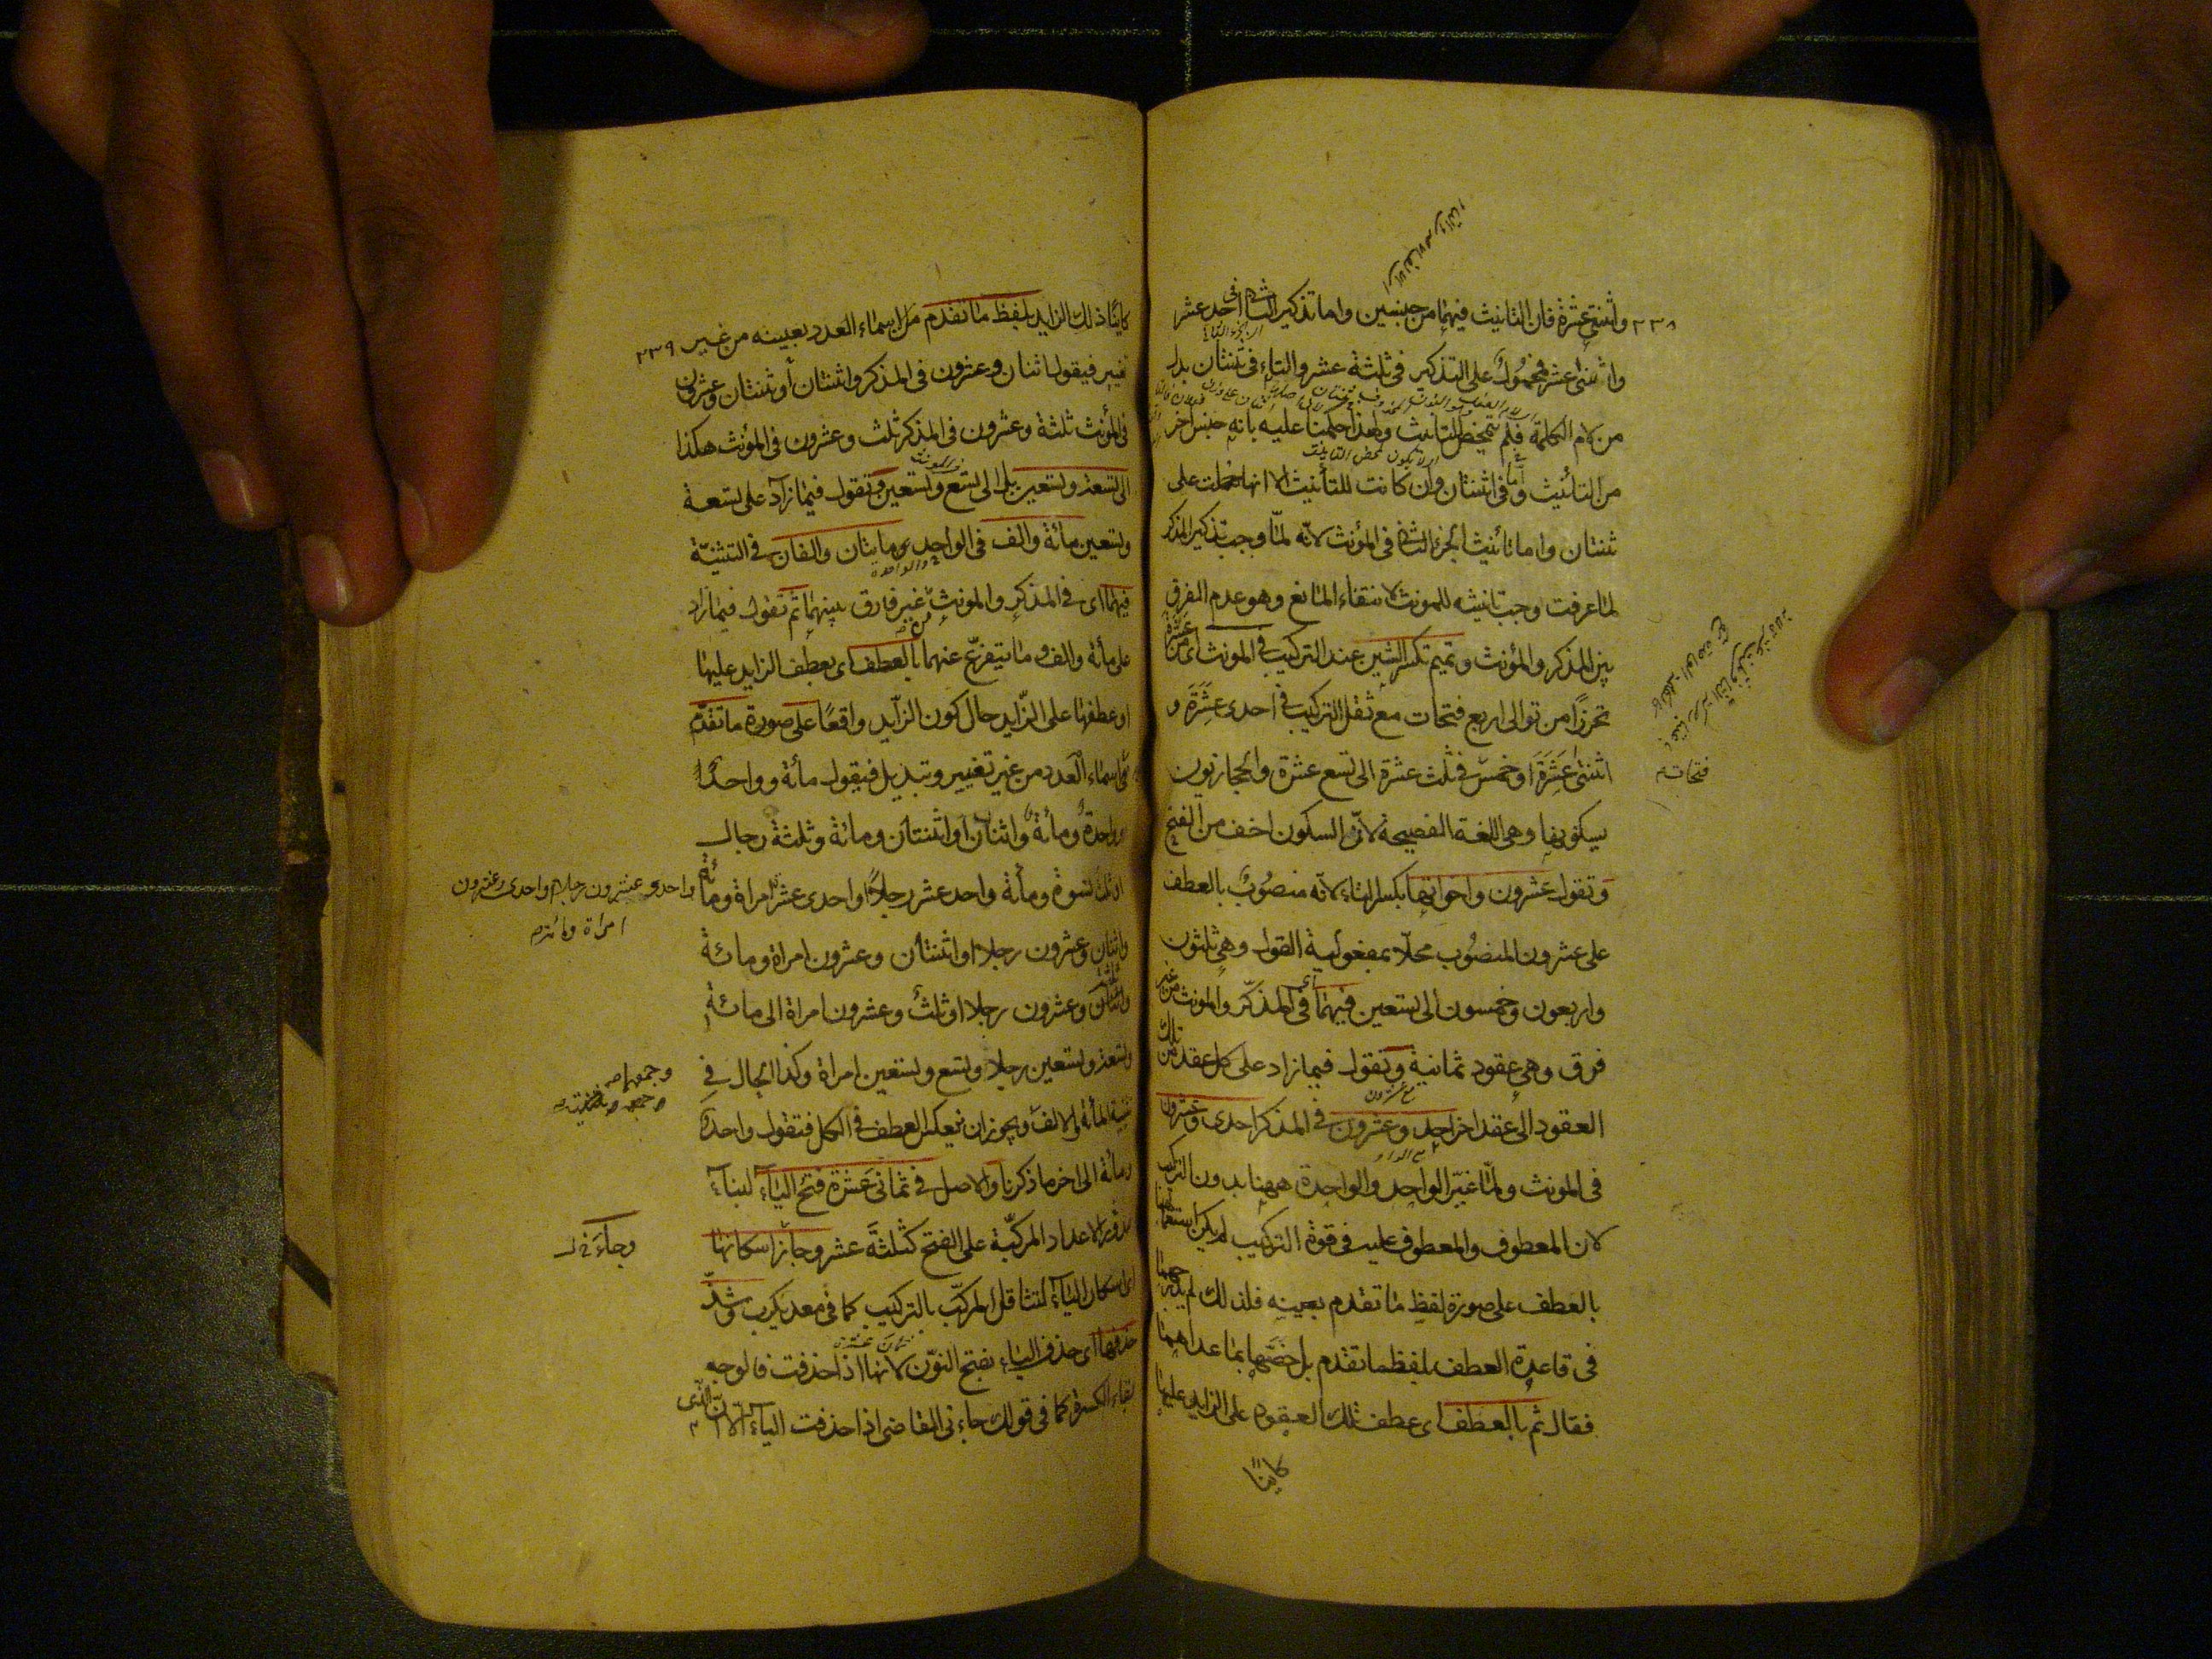 ٢٣٨
واثنتى عشرة فان التانيث فيهما من جنسين واما تذكير الثانى فى احد عشر
واثنى عشر فمحمول على التذكير فى ثلثة عشر والتاء فى ثنتان بدل
من لام الكلمة فلم تتمحض للتانيث ولهذا حكمنا عليه بانه جنس اخر
من التانيث واما فى اثنتان وان كانت للتأنيث الا انها حملت على
ثنتان واما تانيث الجزء الثانى فى المؤنث لانه لما وجب تذكير المذكر
لما عرفت وجب تانيثه للمونث لانتفاء المانع وهو عدم الفرق
بين المذكر والمؤنث وتميم تكسر الشين عند التركيب فى المونث اى من عشرة
تحرزا من توالى اربع فتحات مع ثقل التركيب فى احدى عشرة و
اثنتى عشرة او خمس فى ثلث عشرة الى تسع عشرة والحجازيون
يسكنونها وهى اللغة الفصيحة لان السكون اخف من الفتح
وتقول عشرون واخواتها بكسر التاء لانه منصوب بالعطف
على عشرون المنصوب محلا بمفعولية القول وهى ثلثون
واربعون وخمسون الى تسعين فيهما اى فى المذكر والمونث من غير
فرق وهى عقود ثمانية وتقول فيما زاد على كل عقد من تلك
العقود الى عقد اخر احد وعشرون فى المذكر احدى وعشرون
فى المونث ولما غير الواحد والواحدة ههنا بدون التركيب
لان المعطوف والمعطوف عليه فى قوة التركيب لم يكن استعمالهما
بالعطف على صورة لفظ ما تقدم بعينه فلذلك لم يدرجهما
فى قاعدة العطف بلفظ ما تقدم بل خصها بما عداهما
فقال ثم بالعطف اى عطف تلك العقود على الزايد عليها
كاينا
فتحات
٢٣٩
كاينا ذلك الزايد بلفظ ما تقدم من اسماء العدد بعينه من غير
تغيير فيقول اثنان وعشرون فى المذكر واثنتان أو ثنتان وعشرون
فى المؤنث ثلثة وعشرون فى المذكر ثلث وعشرون فى المؤنث هكذا
الى تسعة وتسعين بل الى تسع وتسعين وتقول فيما زاد على تسعة
وتسعين مائة والف فى الواحد ومايتان والفان فى التثنية
فيهما اى فى المذكر والمونث من غير فرق بينهما ثم تقول فيما زاد
على مائة والف وما يتفرع عنهما بالعطف اى بعطف الزايد عليها
او عطفها على الزايد حال كون الزايد واقعا على صورة ما تقدم
من اسماء العدد من غير تغيير وتبديل فيقول مأة وواحد او
واحدة ومأة واثنان او اثنتان ومائة وثلثة رجال
او ثلث نسوة ومأة واحد عشر رجلا او احدى عشرة امراة ومائة
واحد وعشرون رجلا واحدى وعشرون
امراة ومائة
واثنان وعشرون رجلا او اثنتان وعشرون امراة ومائة
وثلثة وعشرون رجلا او ثلث وعشرون امراة الى مائة
وتسعة وتسعين رجلا وتسع وتسعين امراة وكذا الحال فى
تثنية المأة والالف ويجوز ان يعكس العطف فى الكل فتقول واحد
ومائة الى اخر ما ذكرنا والاصل فى ثمانى عشرة فتح الياء لبناء
صدور الاعداد المركبة على الفتح كثلثة عشر وجاز اسكانها
اى اسكان الياء لتثاقل المركب بالتركيب كما فى معديكرب وشذ
حذفها اى حذف الياء بفتح النون لانها اذا حذفت فالوجه
بقاء الكسرة كما فى قولك جاءنى القاضى اذا حذفت الياء الا ان الذى
وجمعها
وجاء فى